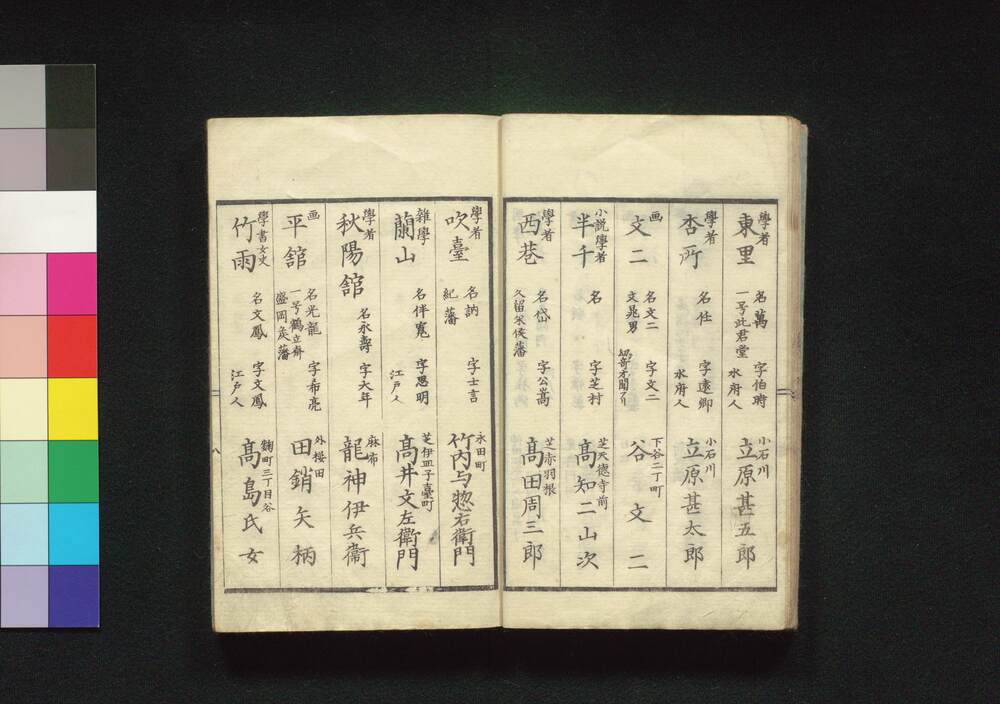 學者
東里
名萬
一号此君堂
字伯時
水府人
小石川
立原甚五郎
學者
杏所
名任
字遠卿
水府人
小石川
立原甚太郎
画
文二
名文二
文晁男
字文二
下谷二丁町
谷文二
小説學者
半千
名
字芝村
芝天德寺前
髙知二山次
學者
西巷
名岱
久留米侯藩
字公嵩
芝赤羽根
髙田周三郎
學者
吹臺
名訥
紀藩
字士言
永田町
竹内与惣右衛門
雜學
蘭山
名伴寛
字思明
江戸人
芝伊皿子臺町
髙井文左衛門
學者
秋陽舘
名永壽
字大年
麻布
龍神伊兵衛
画
平舘
名光龍
一号鶴立齋
盛岡矦藩
字希亮
外櫻田
田鎖矢柄
學書女史
竹雨
名文鳳
字文鳳
江戸人
麹町三丁目谷
髙島氏女
八